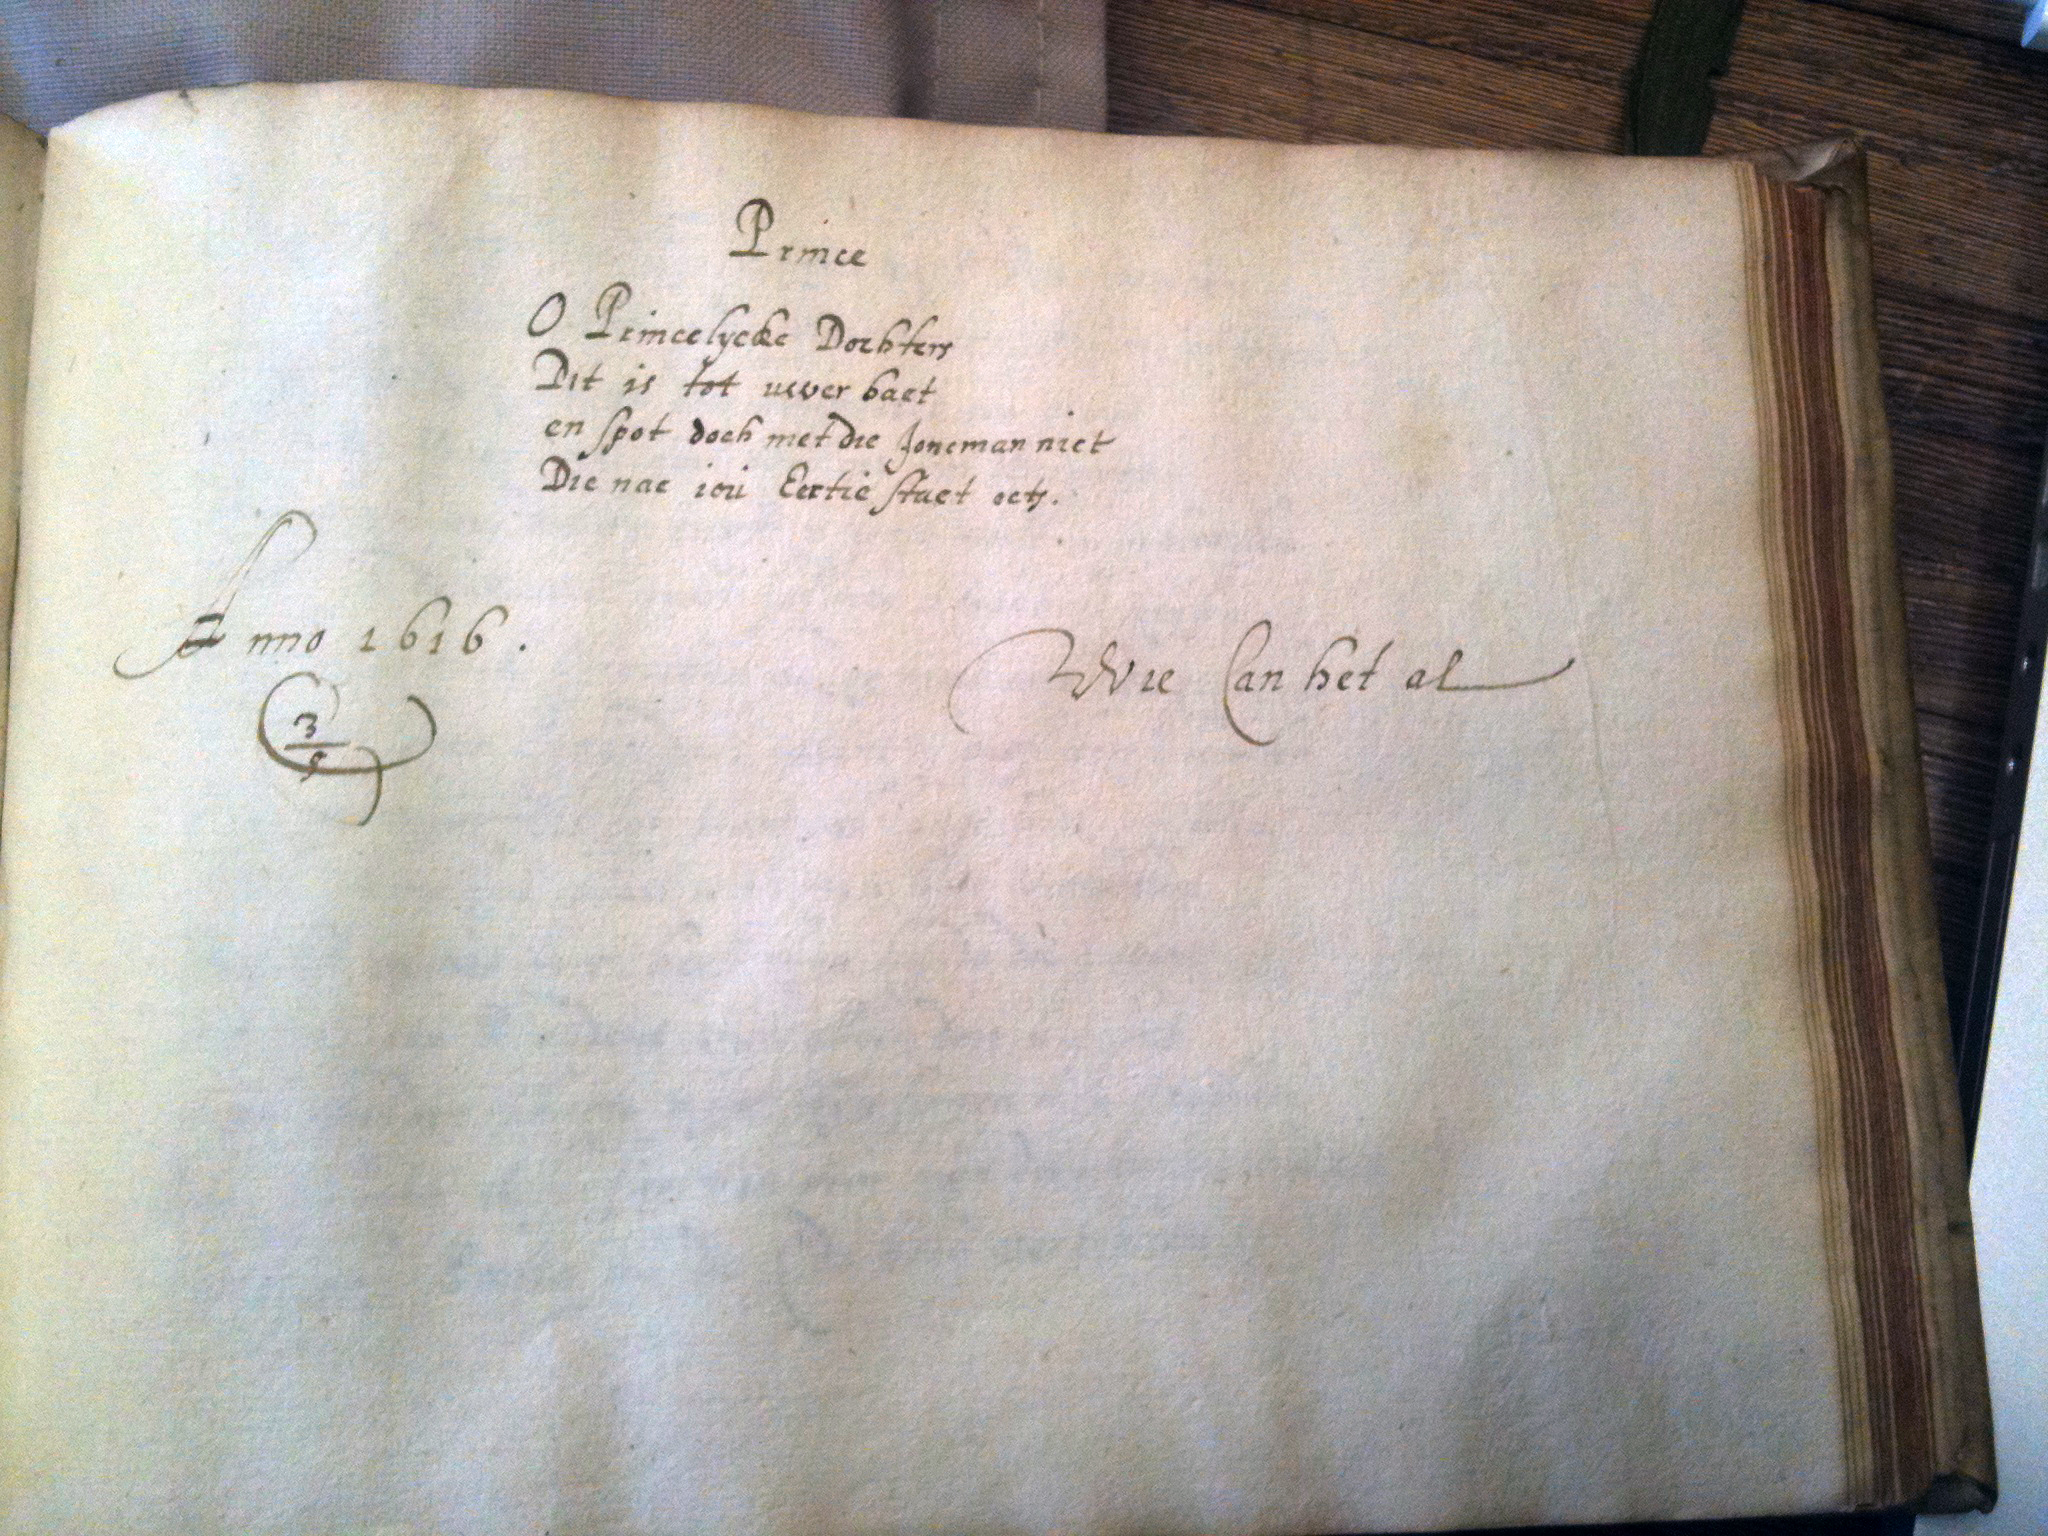 Prince
O Princelycke Dochters
Dit is tot uwer baet
en spot doch met die Joncman niet
Die nae iou Eertie staet etc.
Anno 1616.
3
5
Wie Can het al